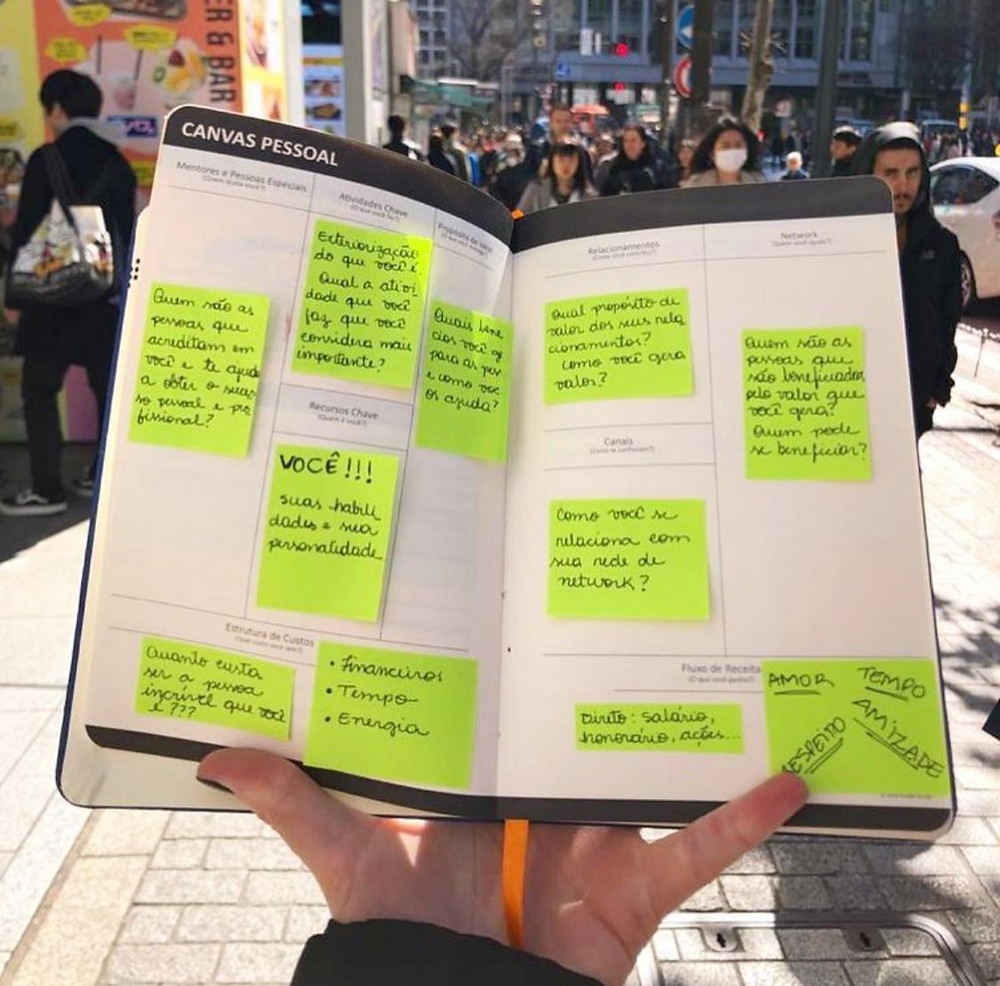 ER & BAR
CANVAS PESSOAL
Mentores e Pessoas Especiais
(Quem ajuda você?)
Quem são as
pessoas que
acreditam em
você e te ajuda
a obter o suces
so pessoal e pro
fissional?
Atividades Chave
(O que você faz?)
Exteriorização
do que você é.
Qual a ativi
dade que você
faz que você
considera mais
importante?
Recursos Chave
(Quem é você?)
VOCÊ!!!
suas habili
dades e sua
personalidade
Proposta de Valor
Quais bene
cios você
para as
e como voc
os ajuda?
Relacionamentos
Qual propósito de
valor dos seus rela
cionamentos?
como você gera
valor?
Canais
Como você se
relaciona com
sua rede de
network?
Network
(Quem você ajuda?)
Quem são as
pessoas que
são beneficiadas
pelo valor que
você gera?
Quem pode
se beneficiar?
Estrutura de Custos
Quanto custa
ser a pessoa
incrível que você
é???
• Financeiros
• Tempo
• Energia
Fluxo de Receita
(O que você ganha?)
Direto: salário,
honorário, ações...
AMOR
TEMPO
RESPEITO
AMIZADE